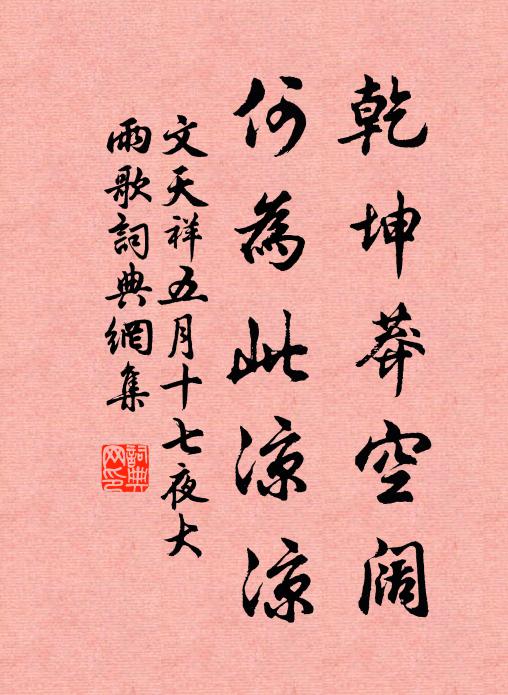 乾坤莽空闊
何為此涼涼
文天祥五月十七夜大
雨歌詞典網集
詞典网印